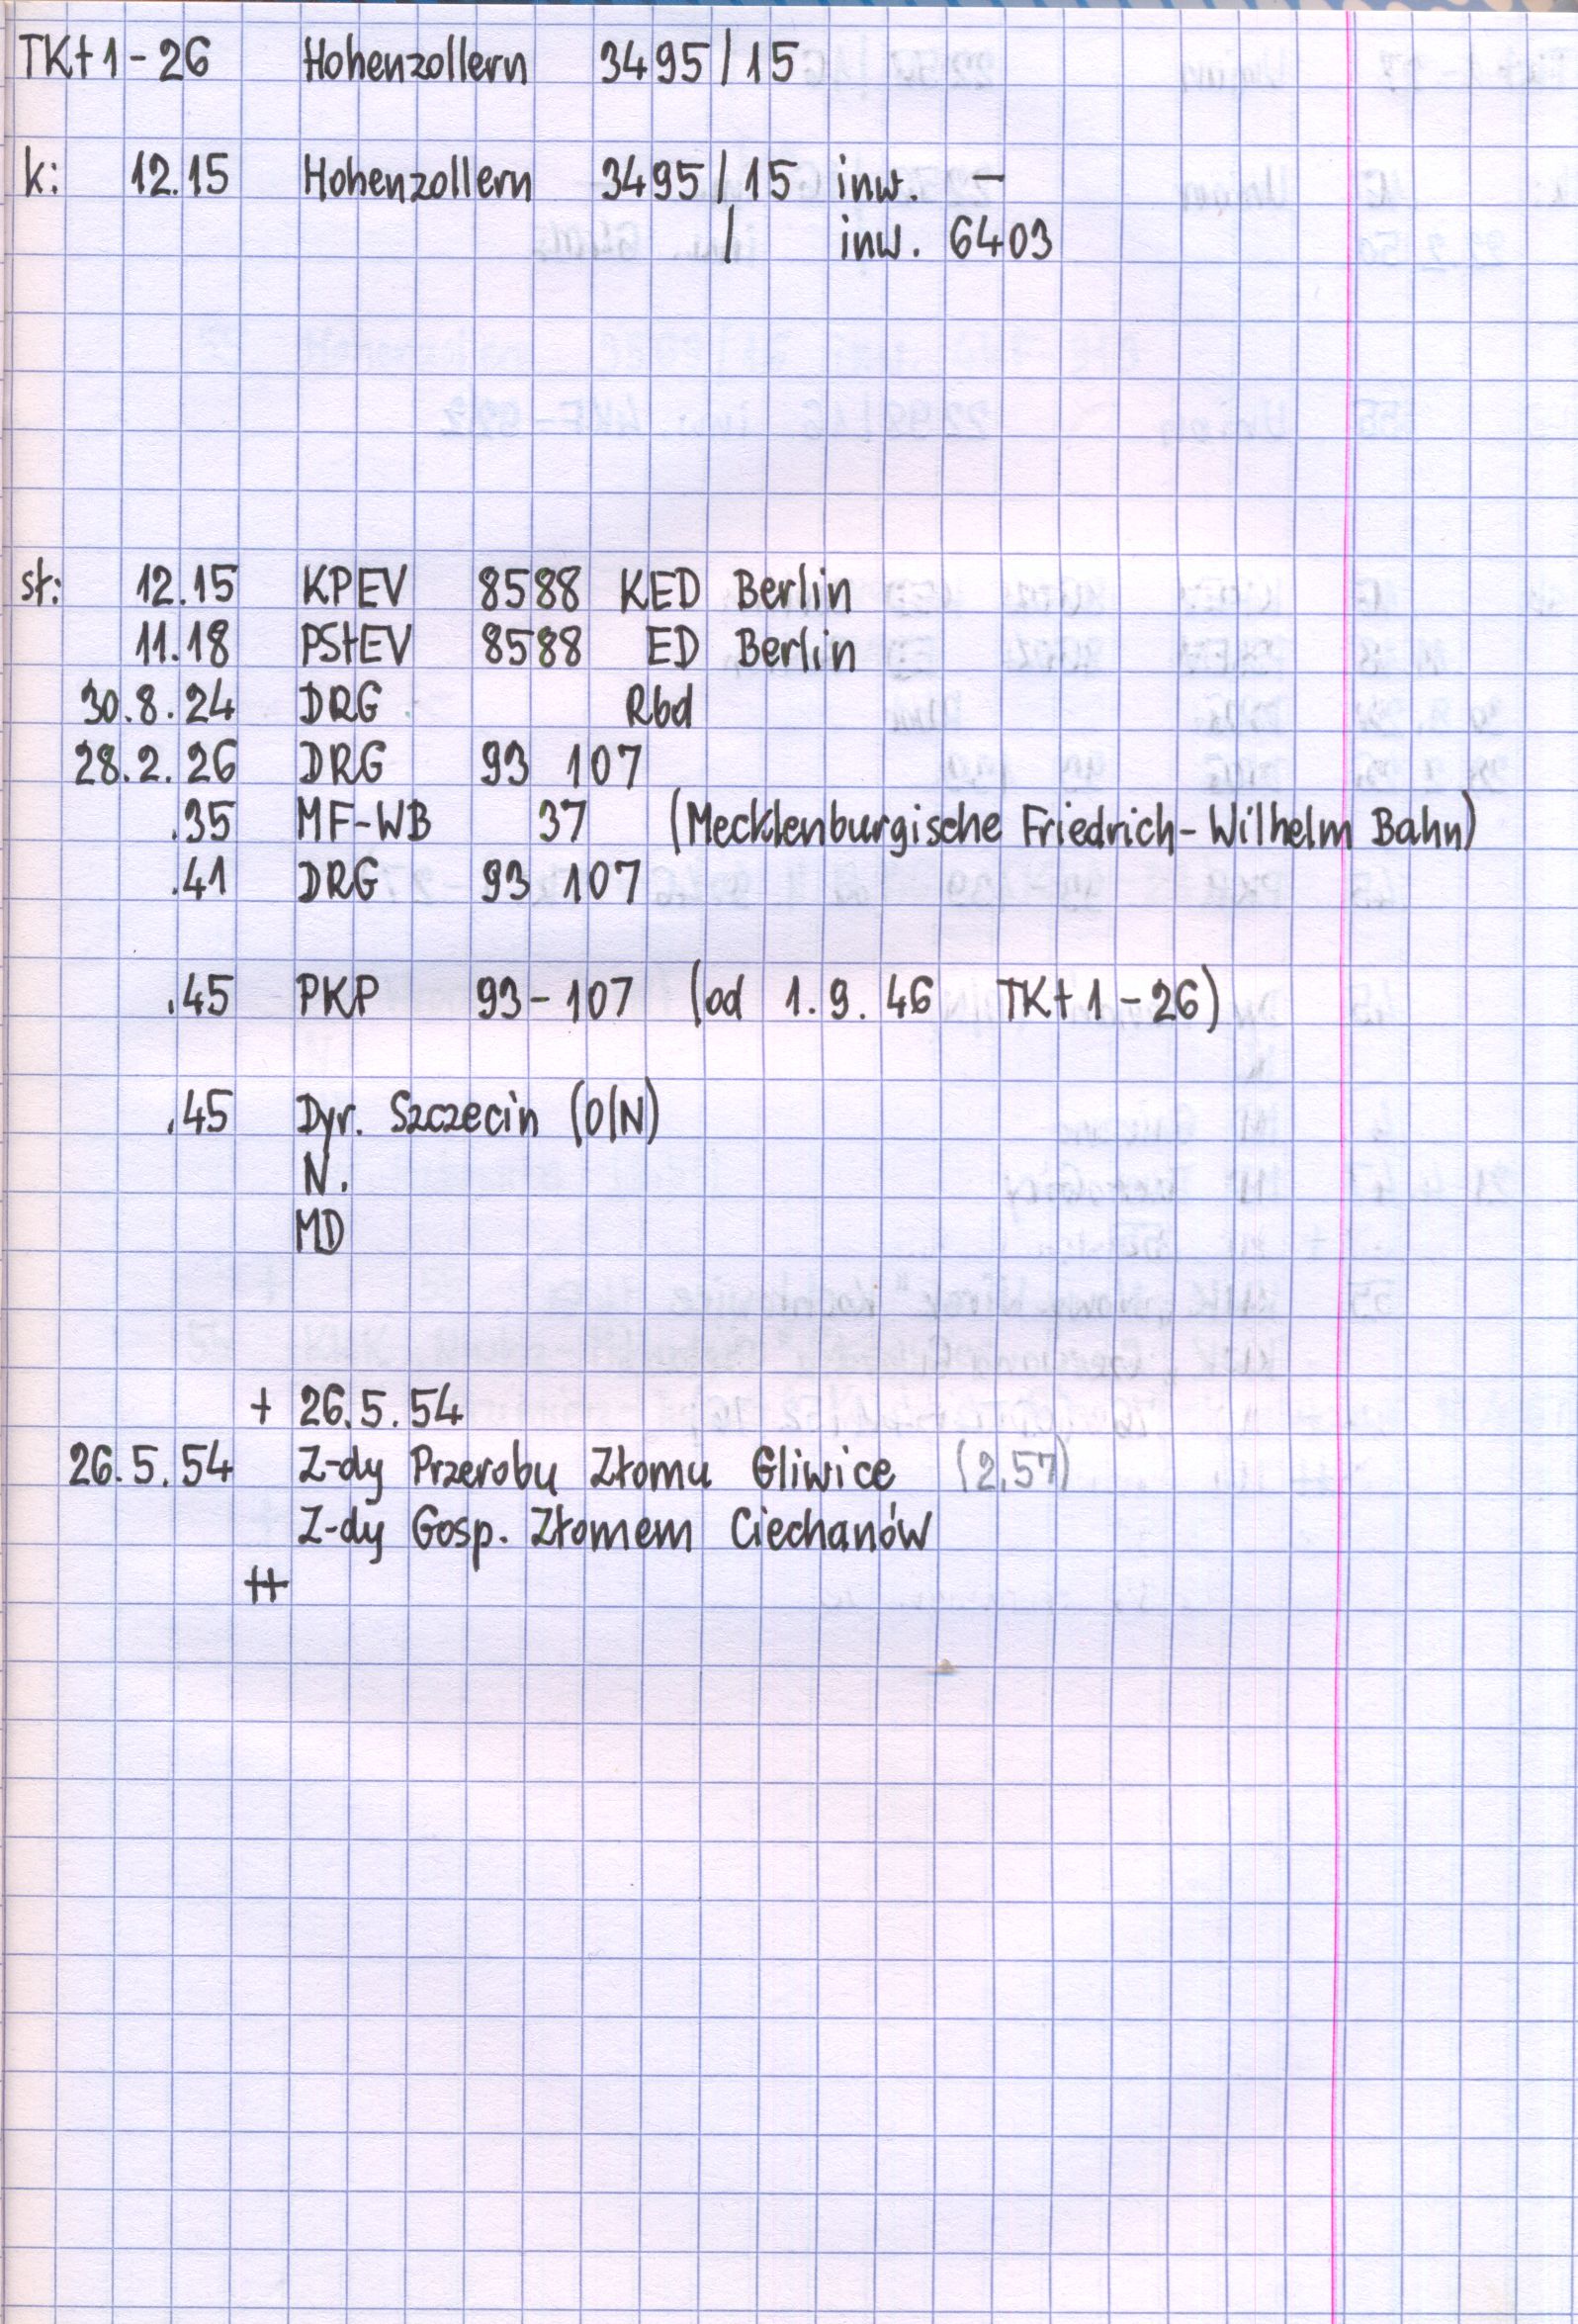 TKt1-26 Hohenzollern 3495/15
k: 12.15 Hohenzollern 3495/15 inw. -
/ inw. 6403
st: 12.15 KPEV 8588 KED Berlin
11.18 PStEV 8588 ED Berlin
30.8.24 DRG Rbd
28.2.26 DRG 93 107
.35 MF-WB 37 (Mecklenburgische Friedrich-Wilhelm Bahn)
.41 DRG 93 107
.45 PKP 93-107 (od 1.9.46 TKt1-26)
.45 Dyr. Szczecin (O/N)
N.
MD
+ 26.5.54
26.5.54 Z-dy Przerobu Złomu Gliwice (2.57)
Z-dy Gosp. Złomem Ciechanów
++